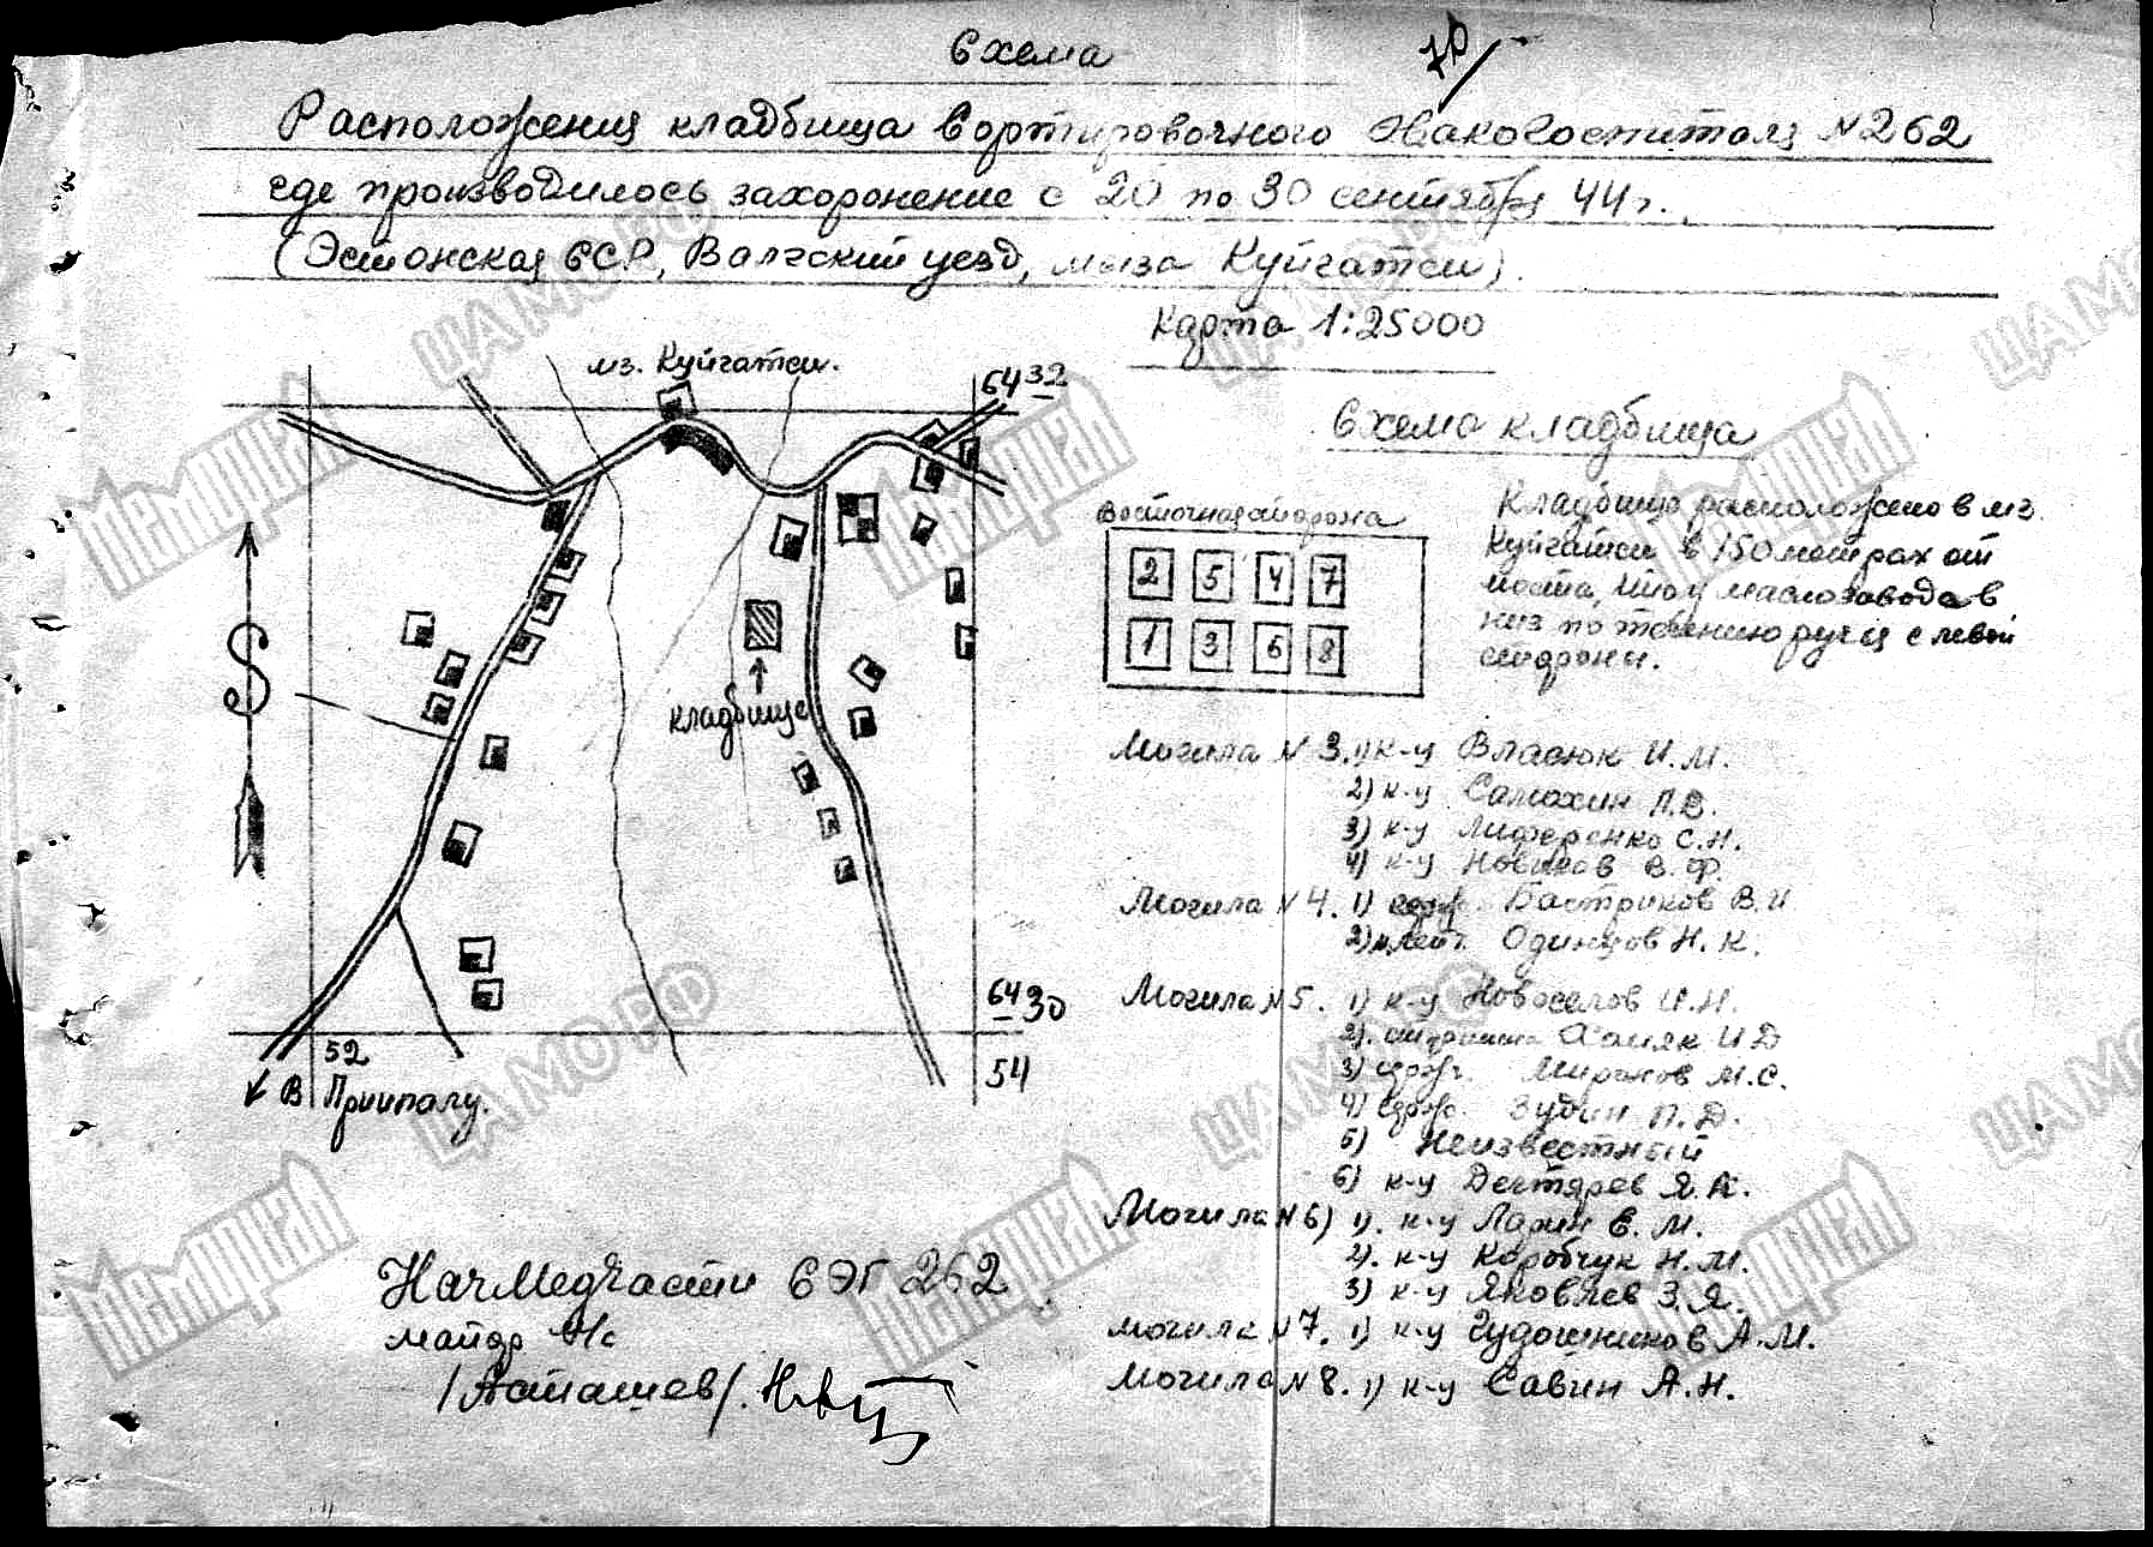 Схема
Расположения кладбища Сортировочного Эвакогоспиталя №262
где производилось захоронение с 20 по 30 сентября 44г.
(Эстонская ССР, Валгский уезд, мыза Куйгатси).
Карта 1:25000
мз. Куйгатси.
6432
Схема кладбища
Восточная сторона
2 5 4 7
1 3 6 8
Кладбище расположено в мз.
Куйгатси в 150 метрах от
моста, что у маслозавода в
низ по течению ручья с левой
стороны.
кладбище
6430
52
54
В Приипалу.
Могила N 3. 1) к-ц Власюк И.М.
2) к-ц Самохин П.В.
3) к-ц Лиференко С.Н.
4) к-ц Новиков В.Ф.
Могила N 4. 1) Бастриков В.И
2) м.лейт. Одинцов Н.К.
Могила N 5. 1) к-ц Новоселов И.Н.
2). старшина И Д
3) серж. Миронов М.С.
4) серж. Зудин П.Д.
5) Неизвестный
6) к-ц Дегтярев Я.К.
Могила N 6) 1). к-ц Ларин Е.М.
2). к-ц Коробчук Н.М.
3) к-ц Яковлев З.Я.
Могила N 7. 1) к-ц Чудошников А.М.
Могила N 8. 1) к-ц Савин А.Н.
НачМедЧасти СЭГ 262
майор м/с
/Асташев/.
Мемориал
ЦАМО РФ